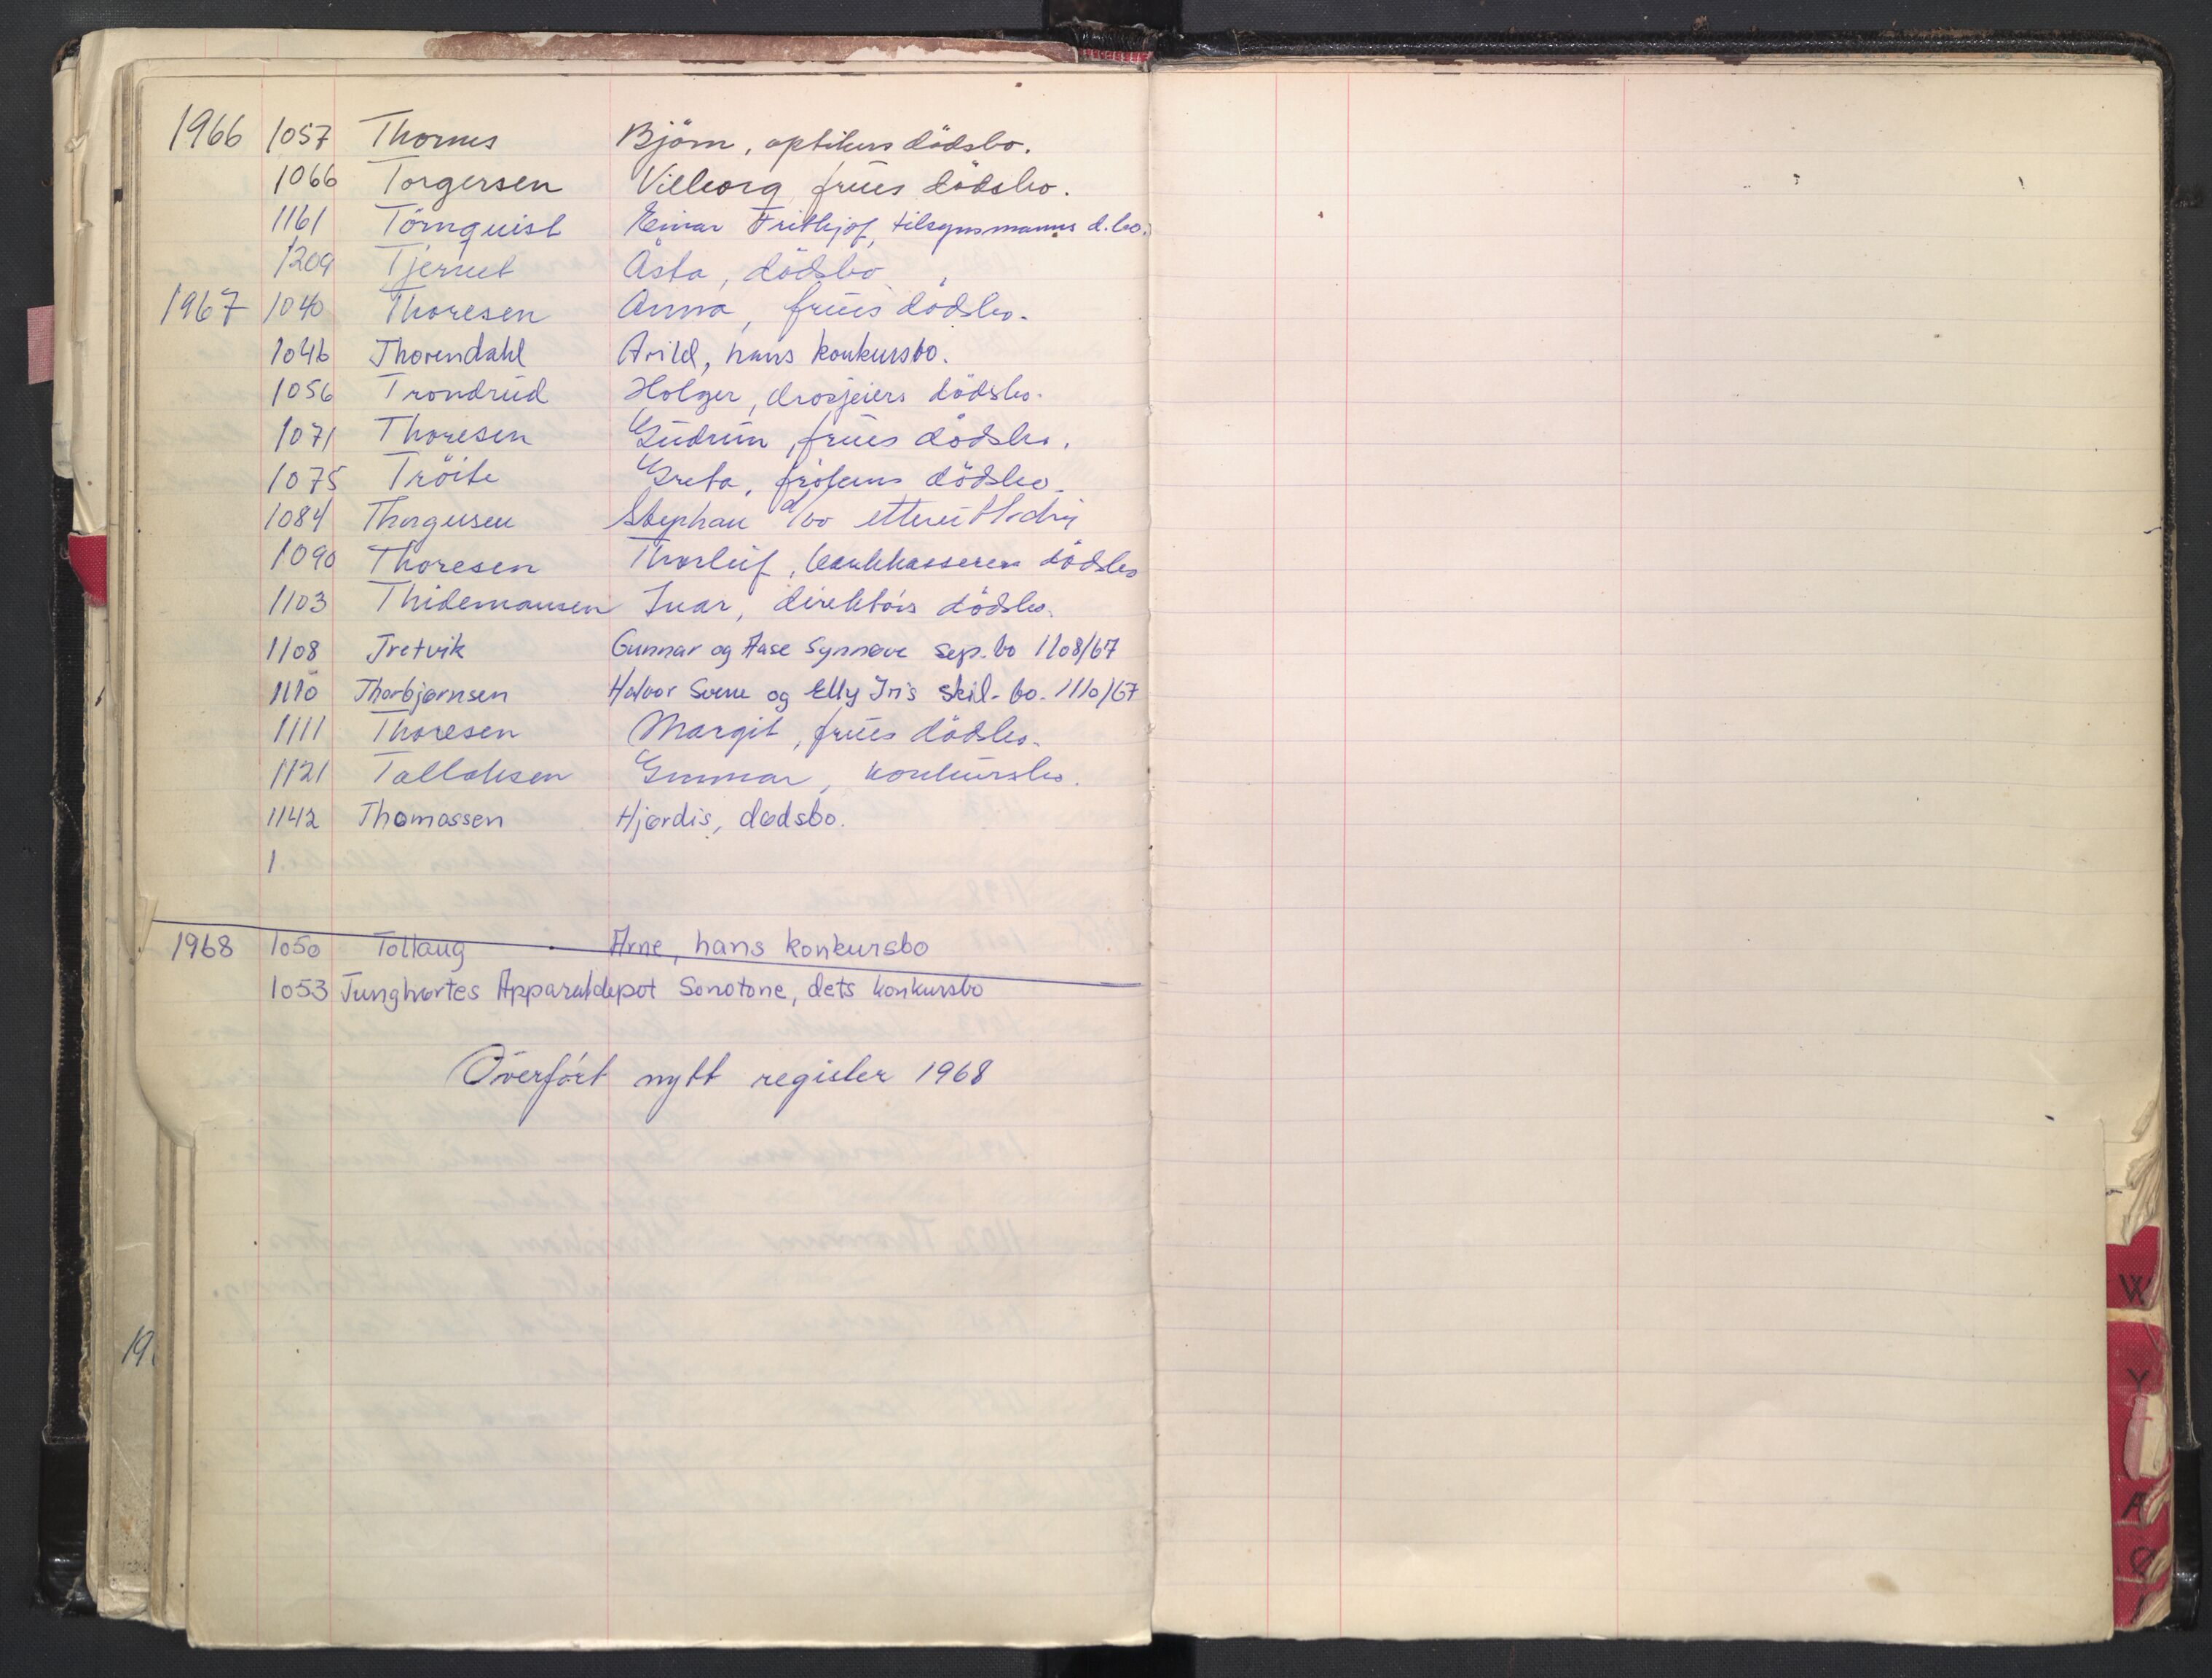 1966 1057 Thornes Björn, optikers dödsbo.
1066 Torgersen Vilborg, frues dödsbo.
1161 Törnquist Einar Frithjof, tilsynsmanns d.bo.
1209 Tjernet Åsta, dödsbo
1967 1040 Thoresen Anna, frues dödsbo.
1046 Thorendahl Arild, hans konkursbo.
1056 Trondrud Holger, drosjeeiers dödsbo.
1071 Thoresen Gudrun, frues dödsbo.
1075 Tröite Greta, frökens dödsbo.
1084 Thorgersen Stephan d/bo
1090 Thoresen Thorleif, bankkasserers dödsbo
1103 Thidemansen Ivar, direktörs dödsbo.
1108 Tretvik Gunnar og Aase Synnøve sep. bo 1108/67
1110 Thorbjørnsen Halvor Sverre og Elly Iris skil. bo. 1110/67
1111 Thoresen Margit, frues dödsbo.
1121 Tallaksen Gunnar, konkursbo.
1142 Thomassen Hjørdis, dødsbo.
1.
1968 1050 Tollaug Arne, hans konkursbo
1053 Tunghørtes Apparatdepot Sonotone, dets konkursbo
Överfört nytt register 1968
19
W
Y
Ø